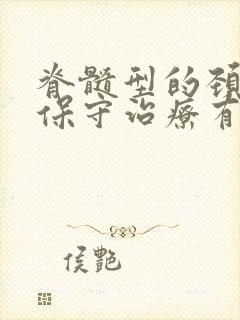 脊髓型的颈
保守治疗有
侯艷